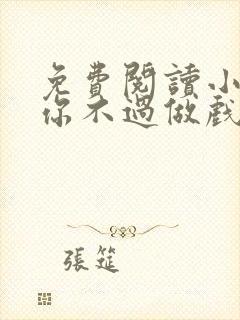 免費閱讀小
你不過做戲
張筵